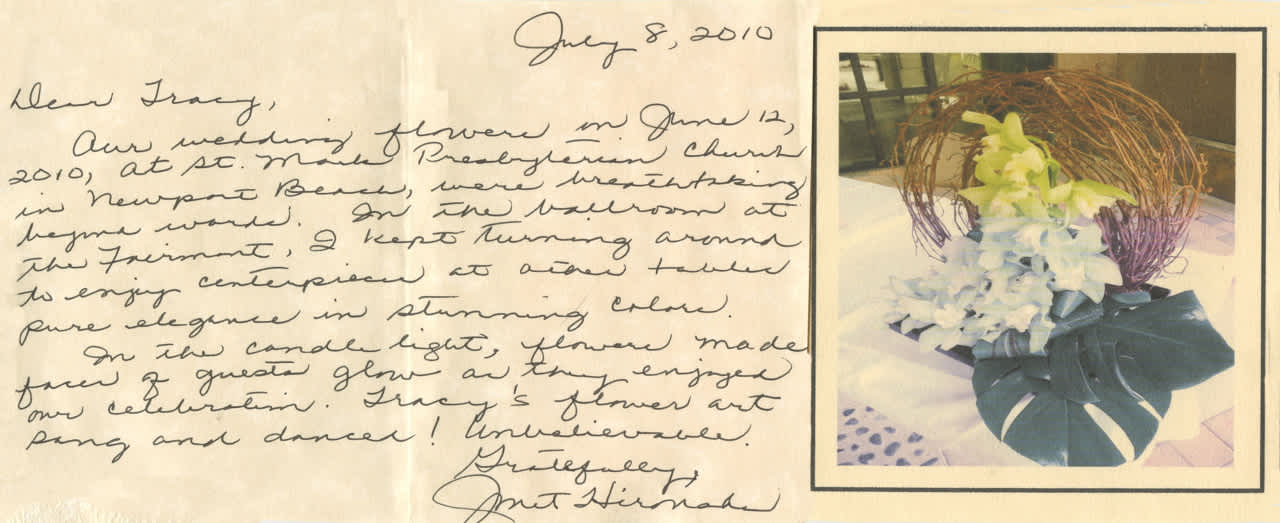 July 8, 2010
Dear Tracy,
Our wedding flowers in June 12,
2010, at St. Mark Presbyterian Church
in Newport Beach, were breathtaking
beyond words. In the ballroom at
the Fairmont, I kept turning around
to enjoy centerpieces at other tables
pure elegance in stunning colors.
In the candle light, flowers made
faces of guests glow as they enjoyed
our celebration. Tracy's flower art
sang and danced! Unbelievable.
Gratefully,
Janet Hironaka